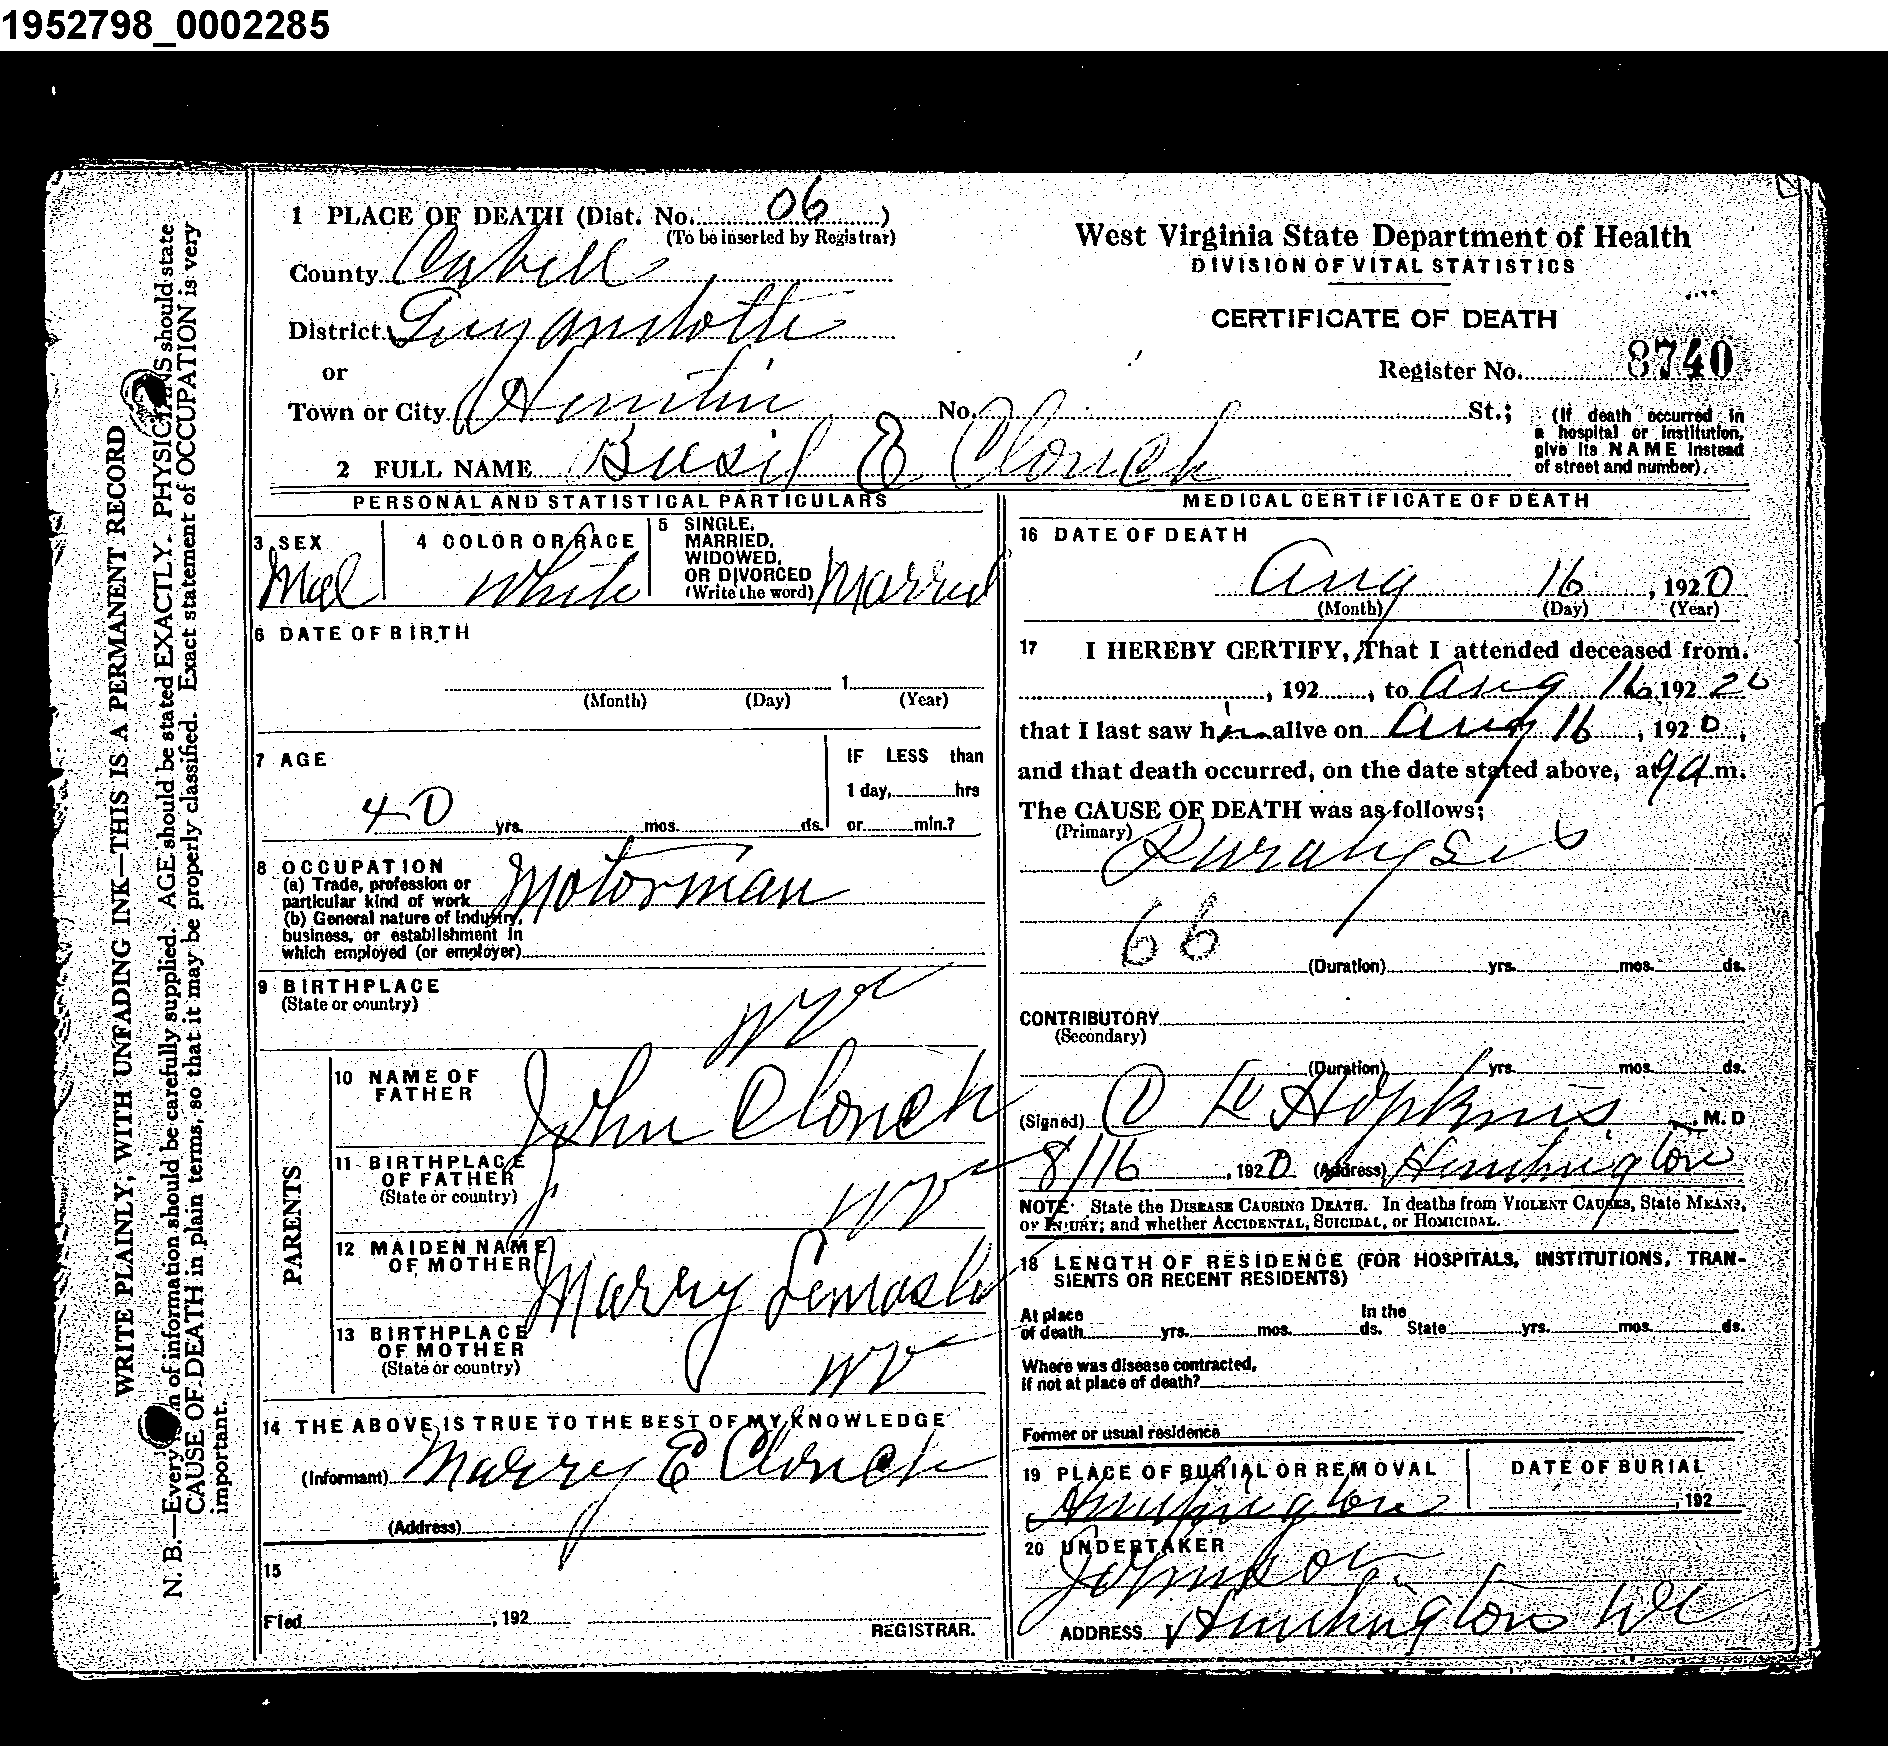 1952798_0002285
WRITE PLAINLY, WITH UNFADING INK—THIS IS A PERMANENT RECORD
N. B.—Every of information should be carefully supplied. AGE should be stated EXACTLY. PHYSICIANS should state
CAUSE OF DEATH in plain terms, so that it may be properly classified. Exact statement of OCCUPATION is very
important.
1 PLACE OF DEATH (Dist. No. 06 )
(To be inserted by Registrar)
County Cabell
District Guyandotte
or
Town or City
No. St.; (If death occurred in
a hospital or institution,
give its NAME instead
of street and number).
2 FULL NAME Basil E Clonch
West Virginia State Department of Health
DIVISION OF VITAL STATISTICS
CERTIFICATE OF DEATH
Register No. 8740
PERSONAL AND STATISTICAL PARTICULARS
3 SEX
Mal
4 COLOR OR RACE
White
5 SINGLE,
MARRIED,
WIDOWED,
OR DIVORCED
(Write the word) Married
6 DATE OF BIRTH
1
(Month) (Day) (Year)
7 AGE
40 yrs. mos. ds.
IF LESS than
1 day, hrs
or min.?
8 OCCUPATION
(a) Trade, profession or
particular kind of work Motorman
(b) General nature of Industry,
business, or establishment in
which employed (or employer)
9 BIRTHPLACE
(State or country)
W Va
PARENTS
10 NAME OF
FATHER
John Clonch
11 BIRTHPLACE
OF FATHER
(State or country)
WV
12 MAIDEN NAME
OF MOTHER
Marry Lemasters
13 BIRTHPLACE
OF MOTHER
(State or country)
WV
14 THE ABOVE IS TRUE TO THE BEST OF MY KNOWLEDGE
(Informant) Marry E Clonch
(Address)
15
Filed , 192
REGISTRAR.
MEDICAL CERTIFICATE OF DEATH
16 DATE OF DEATH
Aug 16 , 1920
(Month) (Day) (Year)
17 I HEREBY CERTIFY, That I attended deceased from.
, 192 , to Aug 16 192 20
that I last saw him alive on Aug 16 , 1920,
and that death occurred, on the date stated above, at 9 a.m.
The CAUSE OF DEATH was as follows;
(Primary) Paralysis
66
(Duration) yrs. mos. ds.
CONTRIBUTORY
(Secondary)
(Duration) yrs. mos. ds.
(Signed) Hopkins M. D
8/16 , 1920 (Address) Huntington
NOTE State the DISEASE CAUSING DEATH. In deaths from VIOLENT CAUSES, State MEANS,
OF INJURY; and whether ACCIDENTAL, SUICIDAL, or HOMICIDAL.
18 LENGTH OF RESIDENCE (FOR HOSPITALS, INSTITUTIONS, TRAN-
SIENTS OR RECENT RESIDENTS)
At place
of death yrs. mos. ds.
In the
State yrs. mos. ds.
Where was disease contracted,
if not at place of death?
Former or usual residence
19 PLACE OF BURIAL OR REMOVAL
Huntington
DATE OF BURIAL
, 192
20 UNDERTAKER
Johnson
ADDRESS Huntington